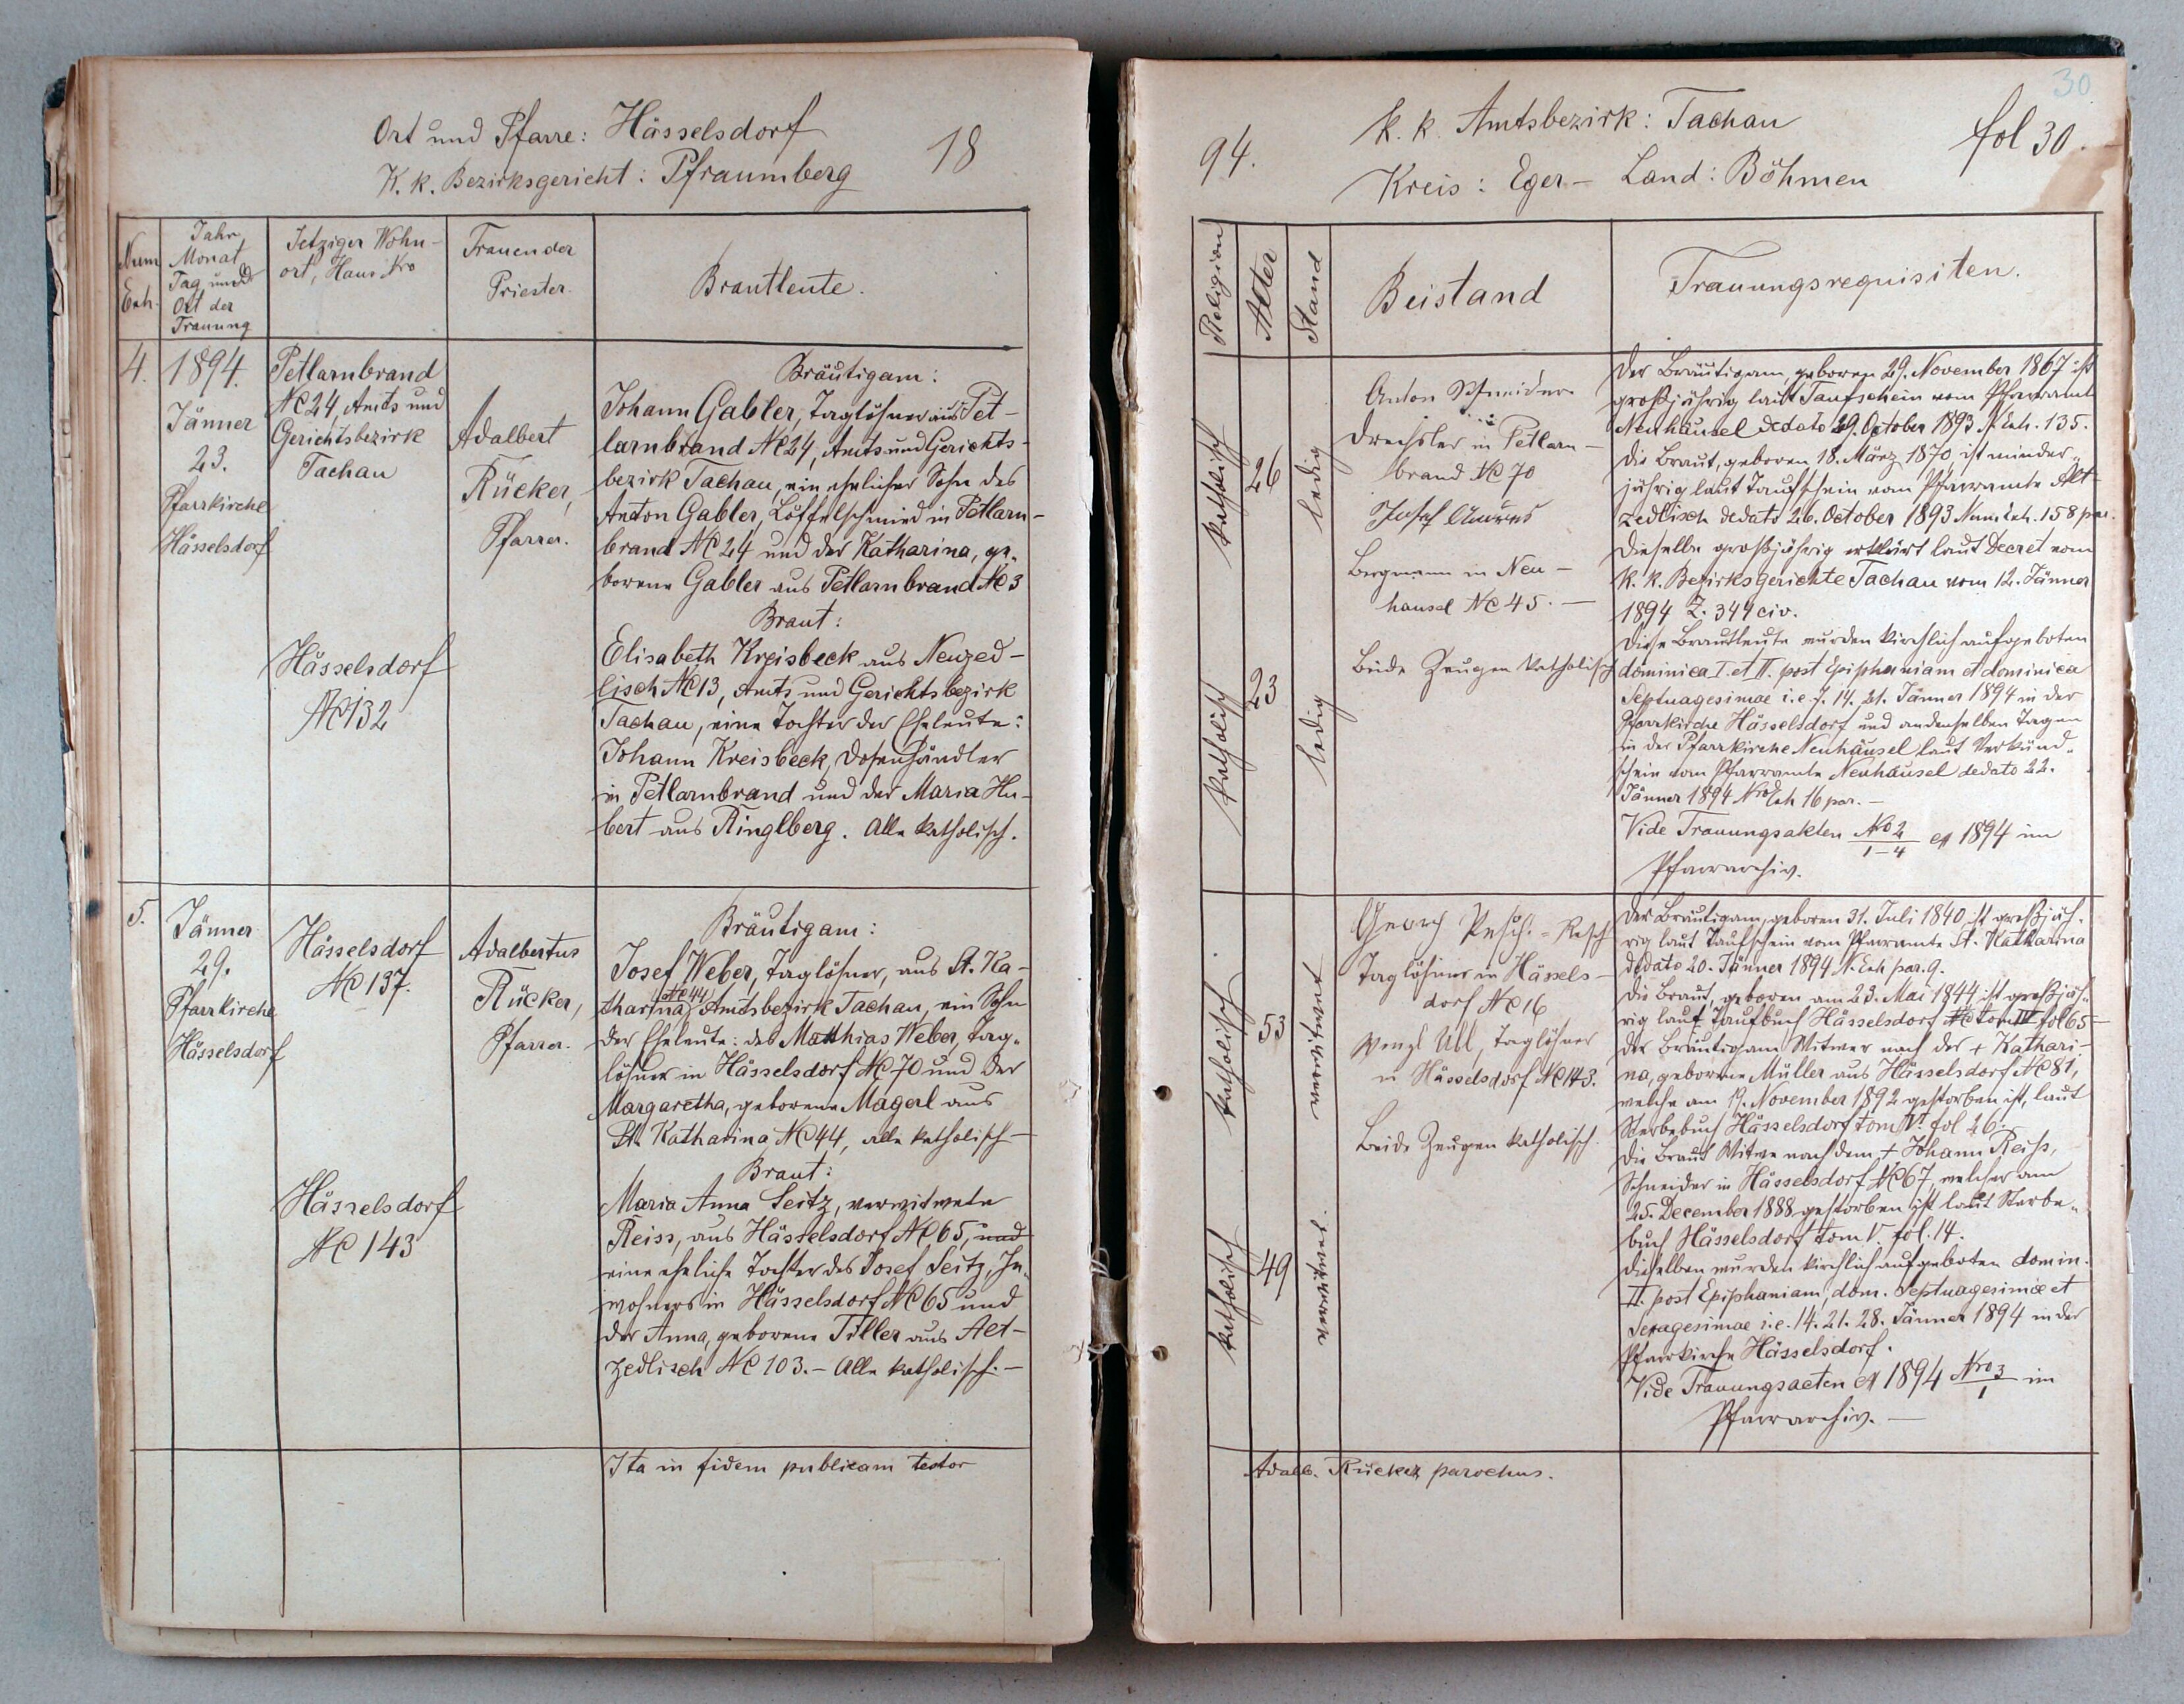 Ort und Pfarre: Hässelsdorf
K. k. Bezirksgericht: Pfraumberg
18
Num
Exh.
Jahr
Monat
Tag und
Ort der
Trauung
Jetziger Wohn-
ort, Haus Nro
Trauender
Priester.
Brautleute.
4.
1894.
Jänner
23.
Pfarrkirche
Hässelsdorf
Petlarnbrand
NC 24, Amts und
Gerichtsbezirk
Tachau
Hässelsdorf
NC 132
Adalbert
Rücker,
Pfarrer.
Bräutigam:
Johann Gabler, Taglöhner aus Pet-
larnbrand NC 24, Amts und Gerichts-
bezirk Tachau, ein ehelicher Sohn des
Anton Gabler, Löffelschmied in Petlarn-
brand NC 24 und der Katharina, ge-
borene Gabler aus Petlarnbrand NC 3
Braut:
Elisabeth Kreisbeck aus Neuzed-
lisch NC 13, Amts und Gerichtsbezirk
Tachau, eine Tochter der Eheleute:
Johann Kreisbeck, Dosenhändler
in Petlarnbrand und der Maria Hu-
bert aus Ringlberg. Alle katholisch.
5.
Jänner
29.
Pfarrkirche
Hässelsdorf
Hässelsdorf
NC 137.
Hässelsdorf
NC 143
Adalbertus
Rücker,
Pfarrer.
Bräutigam:
Josef Weber, Taglöhner, aus St. Ka-
NC 44
tharina, Amtsbezirk Tachau, ein Sohn
der Eheleute: des Matthias Weber, Tag-
löhner in Hässelsdorf NC 70 und der
Margaretha, geborene Magerl aus
St. Katharina NC 44, alle katholisch-
Braut:
Maria Anna Seitz, verwitwete
Reiss, aus Hässelsdorf NC 65, und
eine eheliche Tochter des Josef Seitz, In-
wohners in Hässelsdorf NC 65 und
der Anna, geborene Tiller aus Alt-
zedlisch NC 103.- Alle katholisch.-
Ita in fidem publicam testor
94.
k. k. Amtsbezirk: Tachau
Kreis: Eger - Land: Böhmen
fol 30.
30
Religion
Alter
Stand
Beistand
Trauungsrequisiten.
katholisch
26
ledig
katholisch
23
ledig
Anton Schneider
Drechsler in Petlarn-
brand NC 70
Josef
Bergmann in Neu-
häusel NC 45.-
Beide Zeugen katholisch
Der Bräutigam, geboren 29. November 1867 ist
großjährig laut Taufschein vom Pfarramt
Neuhäusel dedato 29. October 1893 N. Exh. 135.
Die Braut, geboren 18. März 1870, ist minder-
jährig laut Taufschein vom Pfarramte Alt-
zedlisch dedato 26. October 1893 Num Exh. 158 par.
Dieselbe großjährig erklärt laut Decret vom
k. k. Bezirksgerichte Tachau vom 12. Jänner
1894 Z. 344 civ.
Diese Brautleute wurden kirchlich aufgeboten
dominica I. et II. post Epiphaniam et dominica
Septuagesimae i. e. 7. 14. 21. Jänner 1894 in der
Pfarrkirche Hässelsdorf und an denselben Tagen
in der Pfarrkirche Neuhäusel laut Verkünd-
schein vom Pfarramte Neuhäusel dedato 22.
Jänner 1894 Nro Exh 16 par.-
Vide Trauungsakten Nro 2/1-4 ex 1894 im
Pfarrarchiv.
katholisch
53
verwitwet
katholisch
49
verwitwet.
Georg Resch
Taglöhner in Hässels-
dorf NC 16
Wenzl Ull, Taglöhner
in Hässelsdorf NC 143.
Beide Zeugen katholisch.
Der Bräutigam, geboren 31. Juli 1840 ist großjäh-
rig laut Taufschein vom Pfarramte St. Katharina
dedato 20. Jänner 1894 N. Exh par. 9.
Die Braut, geboren am 23. Mai 1844 ist großjäh-
rig laut Taufbuch Hässelsdorf tom IV fol 65-
Der Bräutigam Witwer nach der + Kathari-
na, geborene Müller aus Hässelsdorf NC 81,
welche am 19. November 1892 gestorben ist, laut
Sterbebuch Hässelsdorf tom V. fol 26.
Die Braut Witwe nach dem + Johann Reiss,
Schneider in Hässelsdorf NC 67, welcher am
25. December 1888 gestorben ist laut Sterbe-
buch Hässelsdorf tom V. fol. 14.
Dieselben wurden kirchlich aufgeboten domin.
II. post Epiphaniam, dom. Septuagesimae et
Sexagesimae i. e. 14. 21. 28. Jänner 1894 in der
Pfarrkirche Hässelsdorf.
Vide Trauungsacten ex 1894 Nro 3/1 im
Pfarrarchiv.-
Adalb. Rücker parochus.